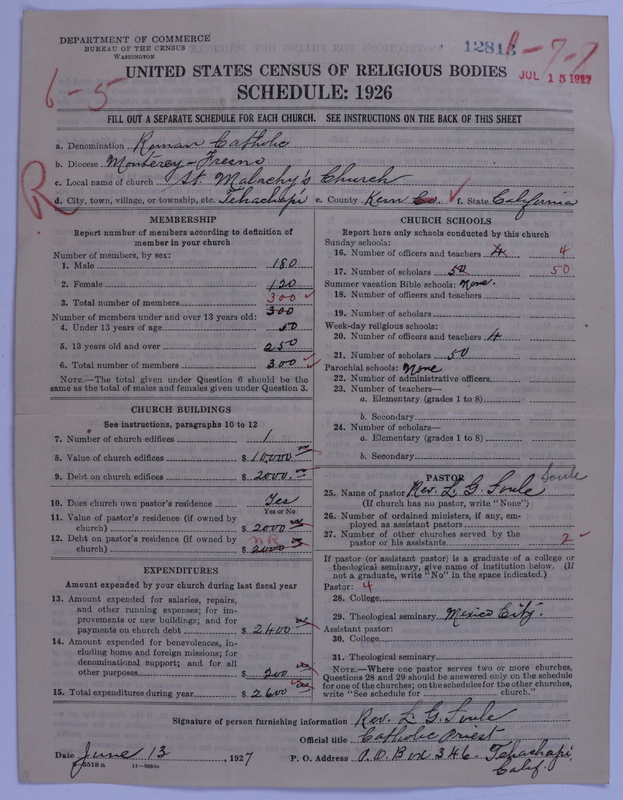 DEPARTMENT OF COMMERCE
BUREAU OF THE CENSUS
WASHINGTON
12813
JUL 15 1927
6-5
UNITED STATES CENSUS OF RELIGIOUS BODIES
SCHEDULE: 1926
FILL OUT A SEPARATE SCHEDULE FOR EACH CHURCH. SEE INSTRUCTIONS ON THE BACK OF THIS SHEET
R
a. Denomination Roman Catholic
b. Diocese Monterey-Fresno
c. Local name of church St. Malachy's Church
d. City, town, village, or township, etc. Tehachapi e. County Kern Co. f. State California
MEMBERSHIP
Report number of members according to definition of
member in your church
Number of members, by sex:
1. Male 180
2. Female 120
300
3. Total number of members 300
Number of members under and over 13 years old:
4. Under 13 years of age 50
5. 13 years old and over 250
6. Total number of members 300
NOTE.—The total given under Question 6 should be
same as the total of males and females given under Question 3.
CHURCH BUILDINGS
See instructions, paragraphs 10 to 12
7. Number of church edifices 1
8. Value of church edifices $ 10000
9. Debt on church edifices $ 2000.
10. Does church own pastor's residence Yes
Yes or No
11. Value of pastor's residence (if owned by
church) $ 2000
12. Debt on pastor's residence (if owned by NR
church) $ 2000
EXPENDITURES
Amount expended by your church during last fiscal year
13. Amount expended for salaries, repairs,
and other running expenses; for im-
provements or new buildings; and for
payments on church debt $ 2400
14. Amount expended for benevolences, in-
cluding home and foreign missions; for
denominational support; and for all
other purposes $ 200
15. Total expenditures during year $ 2600
CHURCH SCHOOLS
Report here only schools conducted by this church
Sunday schools:
16. Number of officers and teachers 4 4
17. Number of scholars 50 50
Summer vacation Bible schools: None.
18. Number of officers and teachers
19. Number of scholars
Week-day religious schools:
20. Number of officers and teachers 4
21. Number of scholars 50
Parochial schools: None
22. Number of administrative officers
23. Number of teachers—
a. Elementary (grades 1 to 8)
b. Secondary
24. Number of scholars—
a. Elementary (grades 1 to 8)
b. Secondary
PASTOR
Soule
25. Name of pastor Rev. L. G. Soule
(If church has no pastor, write "None")
26. Number of ordained ministers, if any, em-
ployed as assistant pastors
27. Number of other churches served by the
pastor or his assistants 2
If pastor (or assistant pastor) is a graduate of a college or
theological seminary, give name of institution below. (If
not a graduate, write "No" in the space indicated.)
Pastor: 4
28. College
29. Theological seminary Mexico City.
Assistant pastor:
30. College
31. Theological seminary
NOTE.—Where one pastor serves two or more churches,
Questions 28 and 29 should be answered only on the schedule
for one of the churches; on the schedules for the other churches,
write "See schedule for church."
Signature of person furnishing information Rev. L. G. Soule
Official title Catholic Priest
Date June 13, 1927 P. O. Address P.O. Box 346. Tehachapi
Calif.